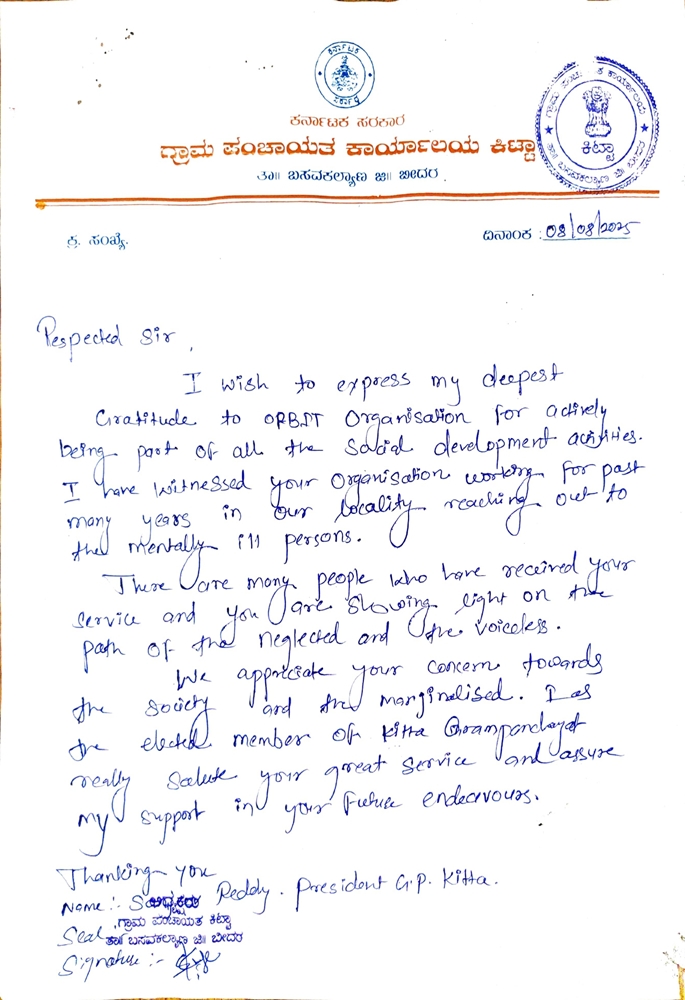 ಕರ್ನಾಟಕ
ಸರ್ಕಾರ
ಕರ್ನಾಟಕ ಸರಕಾರ
ಗ್ರಾಮ ಪಂಚಾಯತ ಕಾರ್ಯಾಲಯ ಕಿಟ್ಟಾ
ತಾ॥ ಬಸವಕಲ್ಯಾಣ ಜಿ॥ ಬೀದರ.
ಗ್ರಾಮ ಪಂಚಾ ಕ ಕಾರ್ಯಾಲಯ
ಕಿಟ್ಟಾ
ತಾ॥ ಬಸವಕಲ್ಯಾಣ ಜಿ॥ ಬೀದರ
ಕ್ರ. ಸಂಖ್ಯೆ.
ದಿನಾಂಕ : 08/08/2025
Respected Sir,
I wish to express my deepest
Gratitude to ORBIT Organisation for actively
being part of all the Social development activities.
I have witnessed your Organisation working for past
many years in our locality reaching out to
the mentally ill persons.
There are many people who have received your
service and you are showing light on the
path of the neglected and the voiceless.
We appreciate your concern towards
the society and the marginalised. I as
the elected member of Kitta Grampanchayat
really Salute your great service and assure
my support in your future endeavours.
Thanking you
Name:- Reddy. President G.P. Kitta.
ಅಧ್ಯಕ್ಷರು
ಗ್ರಾಮ ಪಂಚಾಯತ ಕಿಟ್ಟಾ
Seal
ತಾ॥ ಬಸವಕಲ್ಯಾಣ ಜಿ॥ ಬೀದರ
Signature:-